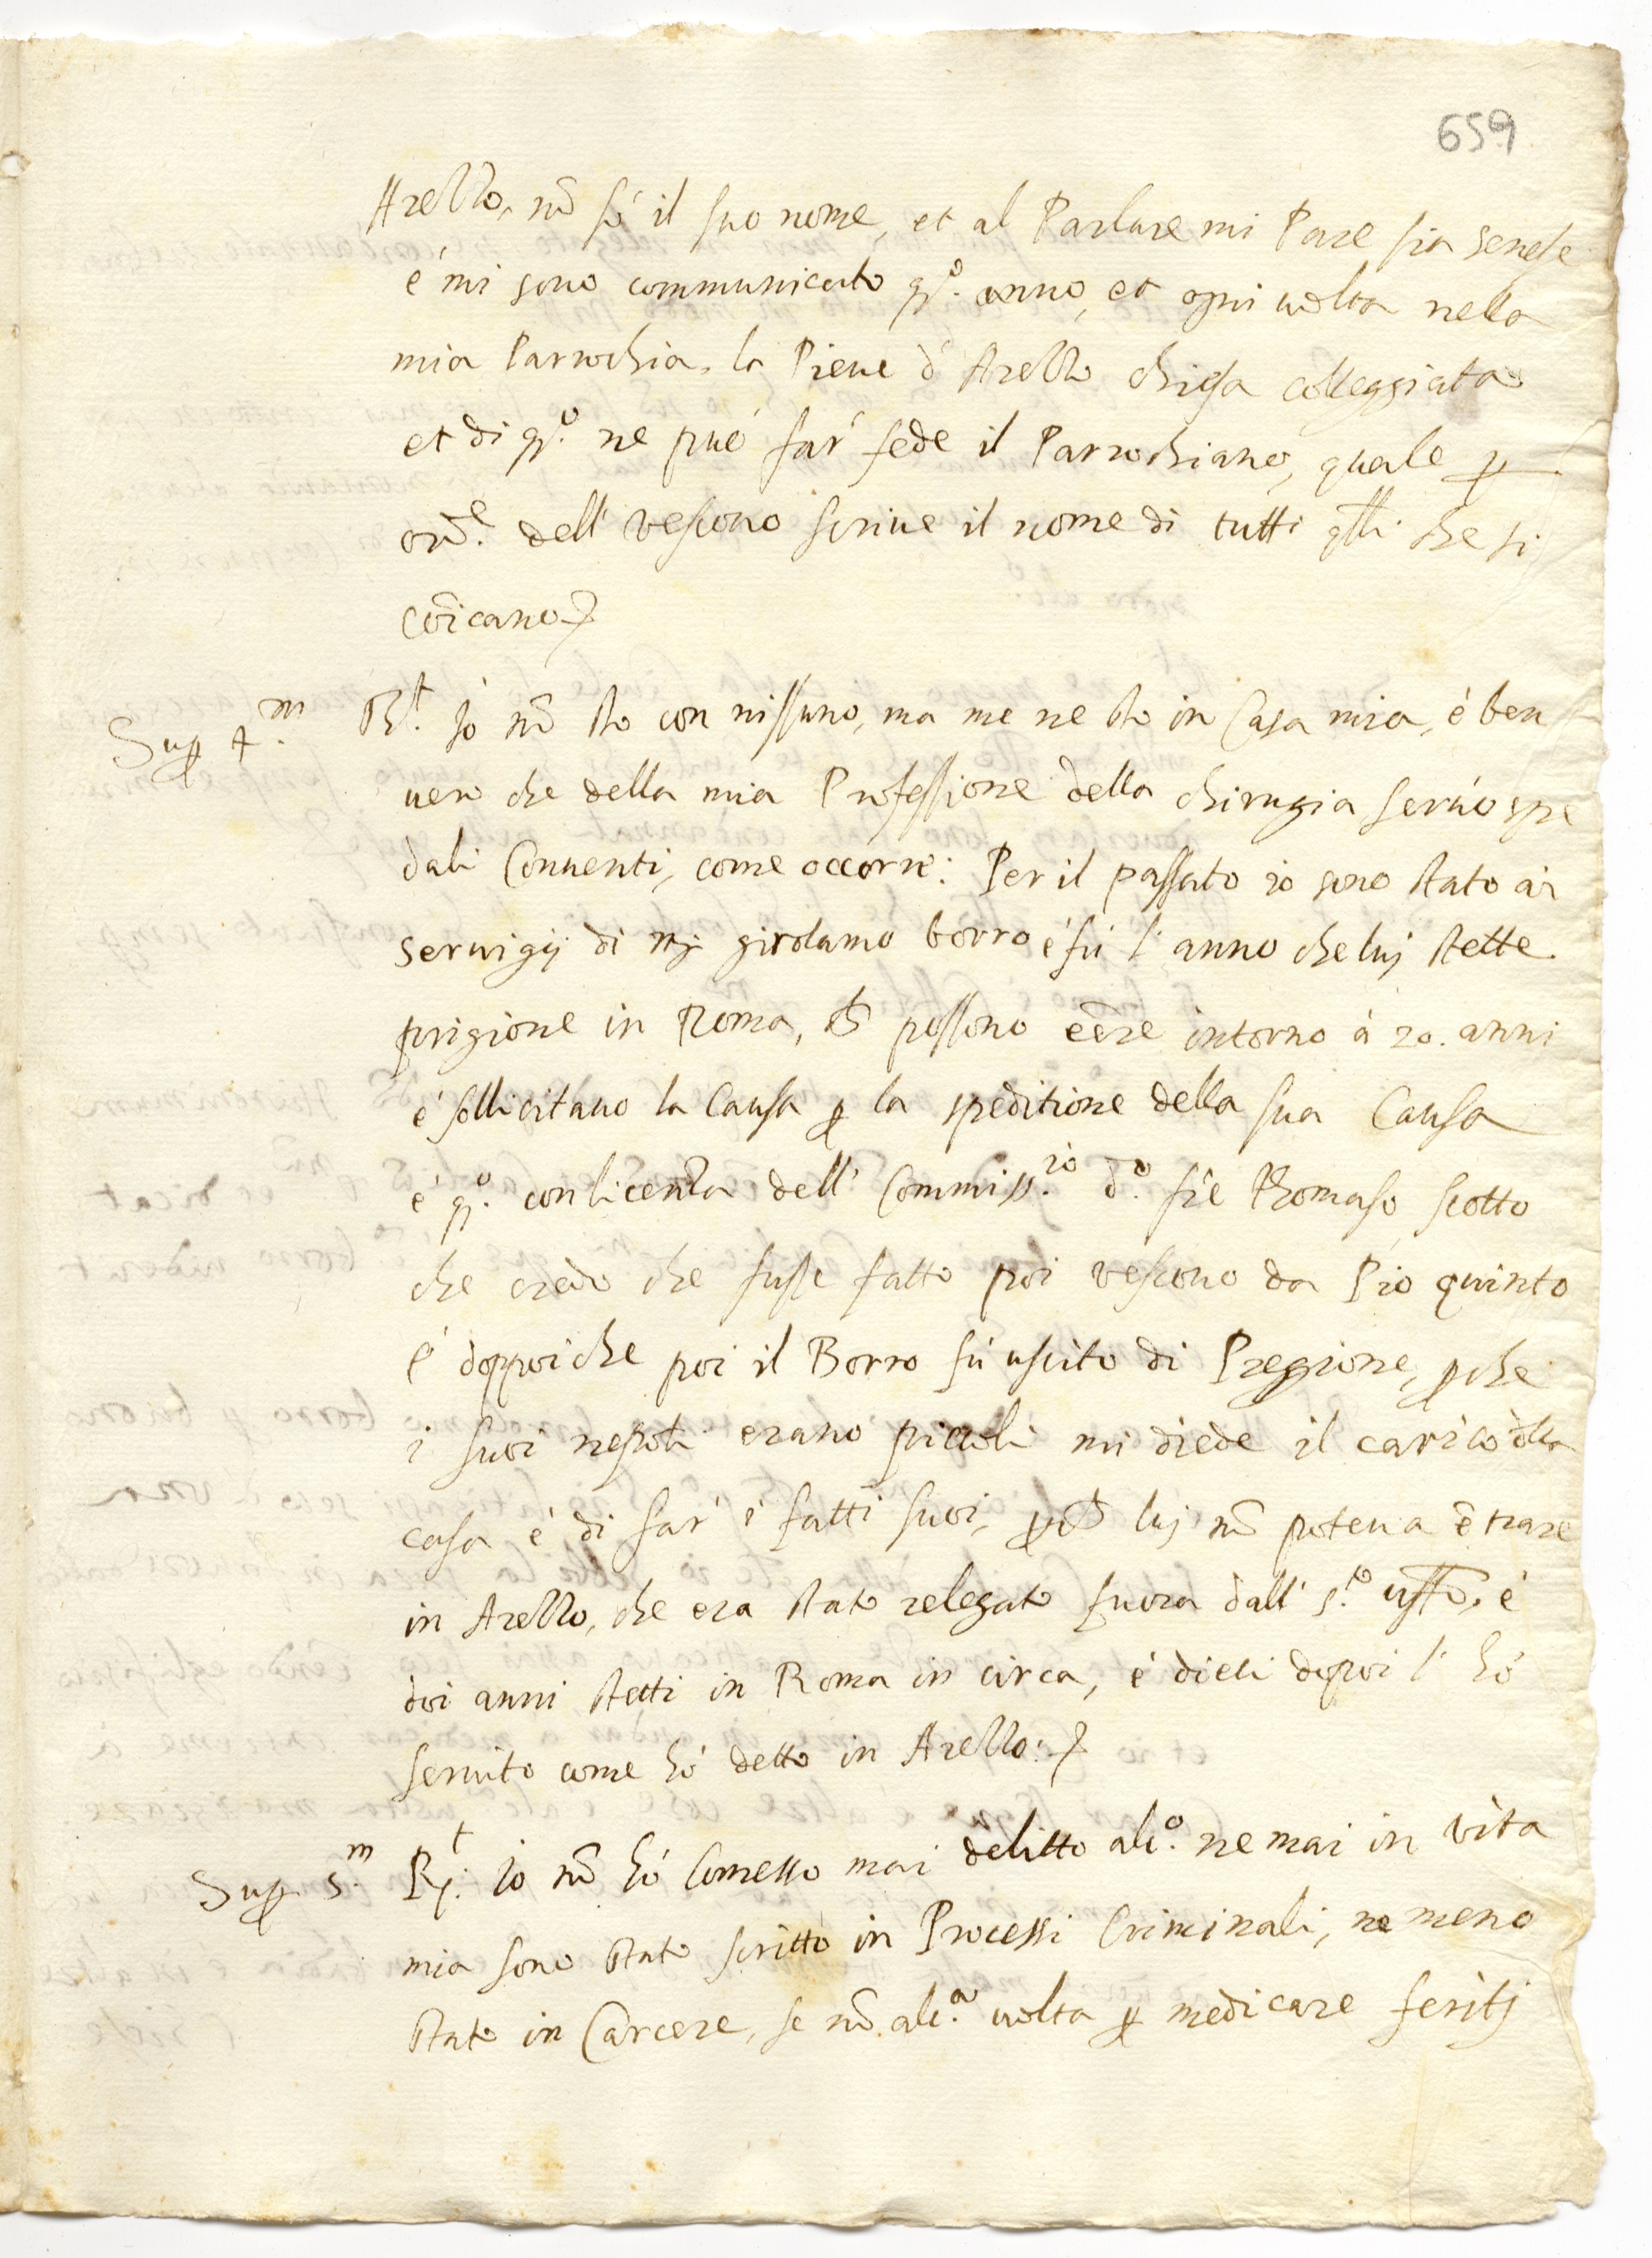 659
Arezzo, nõ sò il suo nome, et al Parlare mi Pare sia senese
é mi sono communicato q.º anno, et ogni uolta nella
mia Parrochia, la Pieue d'Arezzo chiesa colleggiata
et di q.º ne può far' fede il Parrochiano, quale p
ord.e dell' vescouo scriue il nome di tutti q̃lli che si
cõicano
Sup 4.m R.t Io nõ sto con nissuno, ma me ne sto in Casa mia, é ben
uero che della mia Professione della chirugia seruo spe
dali Conuenti, come occorre: Per il passato io sono stato ài
seruigij di mj girolamo borro é fù l'anno che luj stette
prigione in Roma, ch̃ possono eẽre intorno à 20. anni
é sollicitauo la Causa p la speditione della sua Causa
é q.º con licenza dell' Commiss.rio d.º frẽ Thomaso scotto
che credo che fusse fatto poi vescouo da Pio quinto
é doppoi che poi il Borro fù uscito di Preggione, pche
i suoi nepoti erano piccoli mi diede il carico dlla
casa é di far' i fatti suoi, pch̃ luj nõ poteua ẽtrare
in Arezzo, che era stato relegato fuora dall' s.to uffo, é
doi anni stetti in Roma in circa, é dieci dopoi l'hò
seruito come hò detto in Arezzo:
Sup 5.m R.t Io nõ hò Comesso mai delitto alc.º ne mai in vita
mia sono stato scritto in Processi Criminali, ne meno
stato in Carcere, se nõ alc.a uolta p medicare feritj